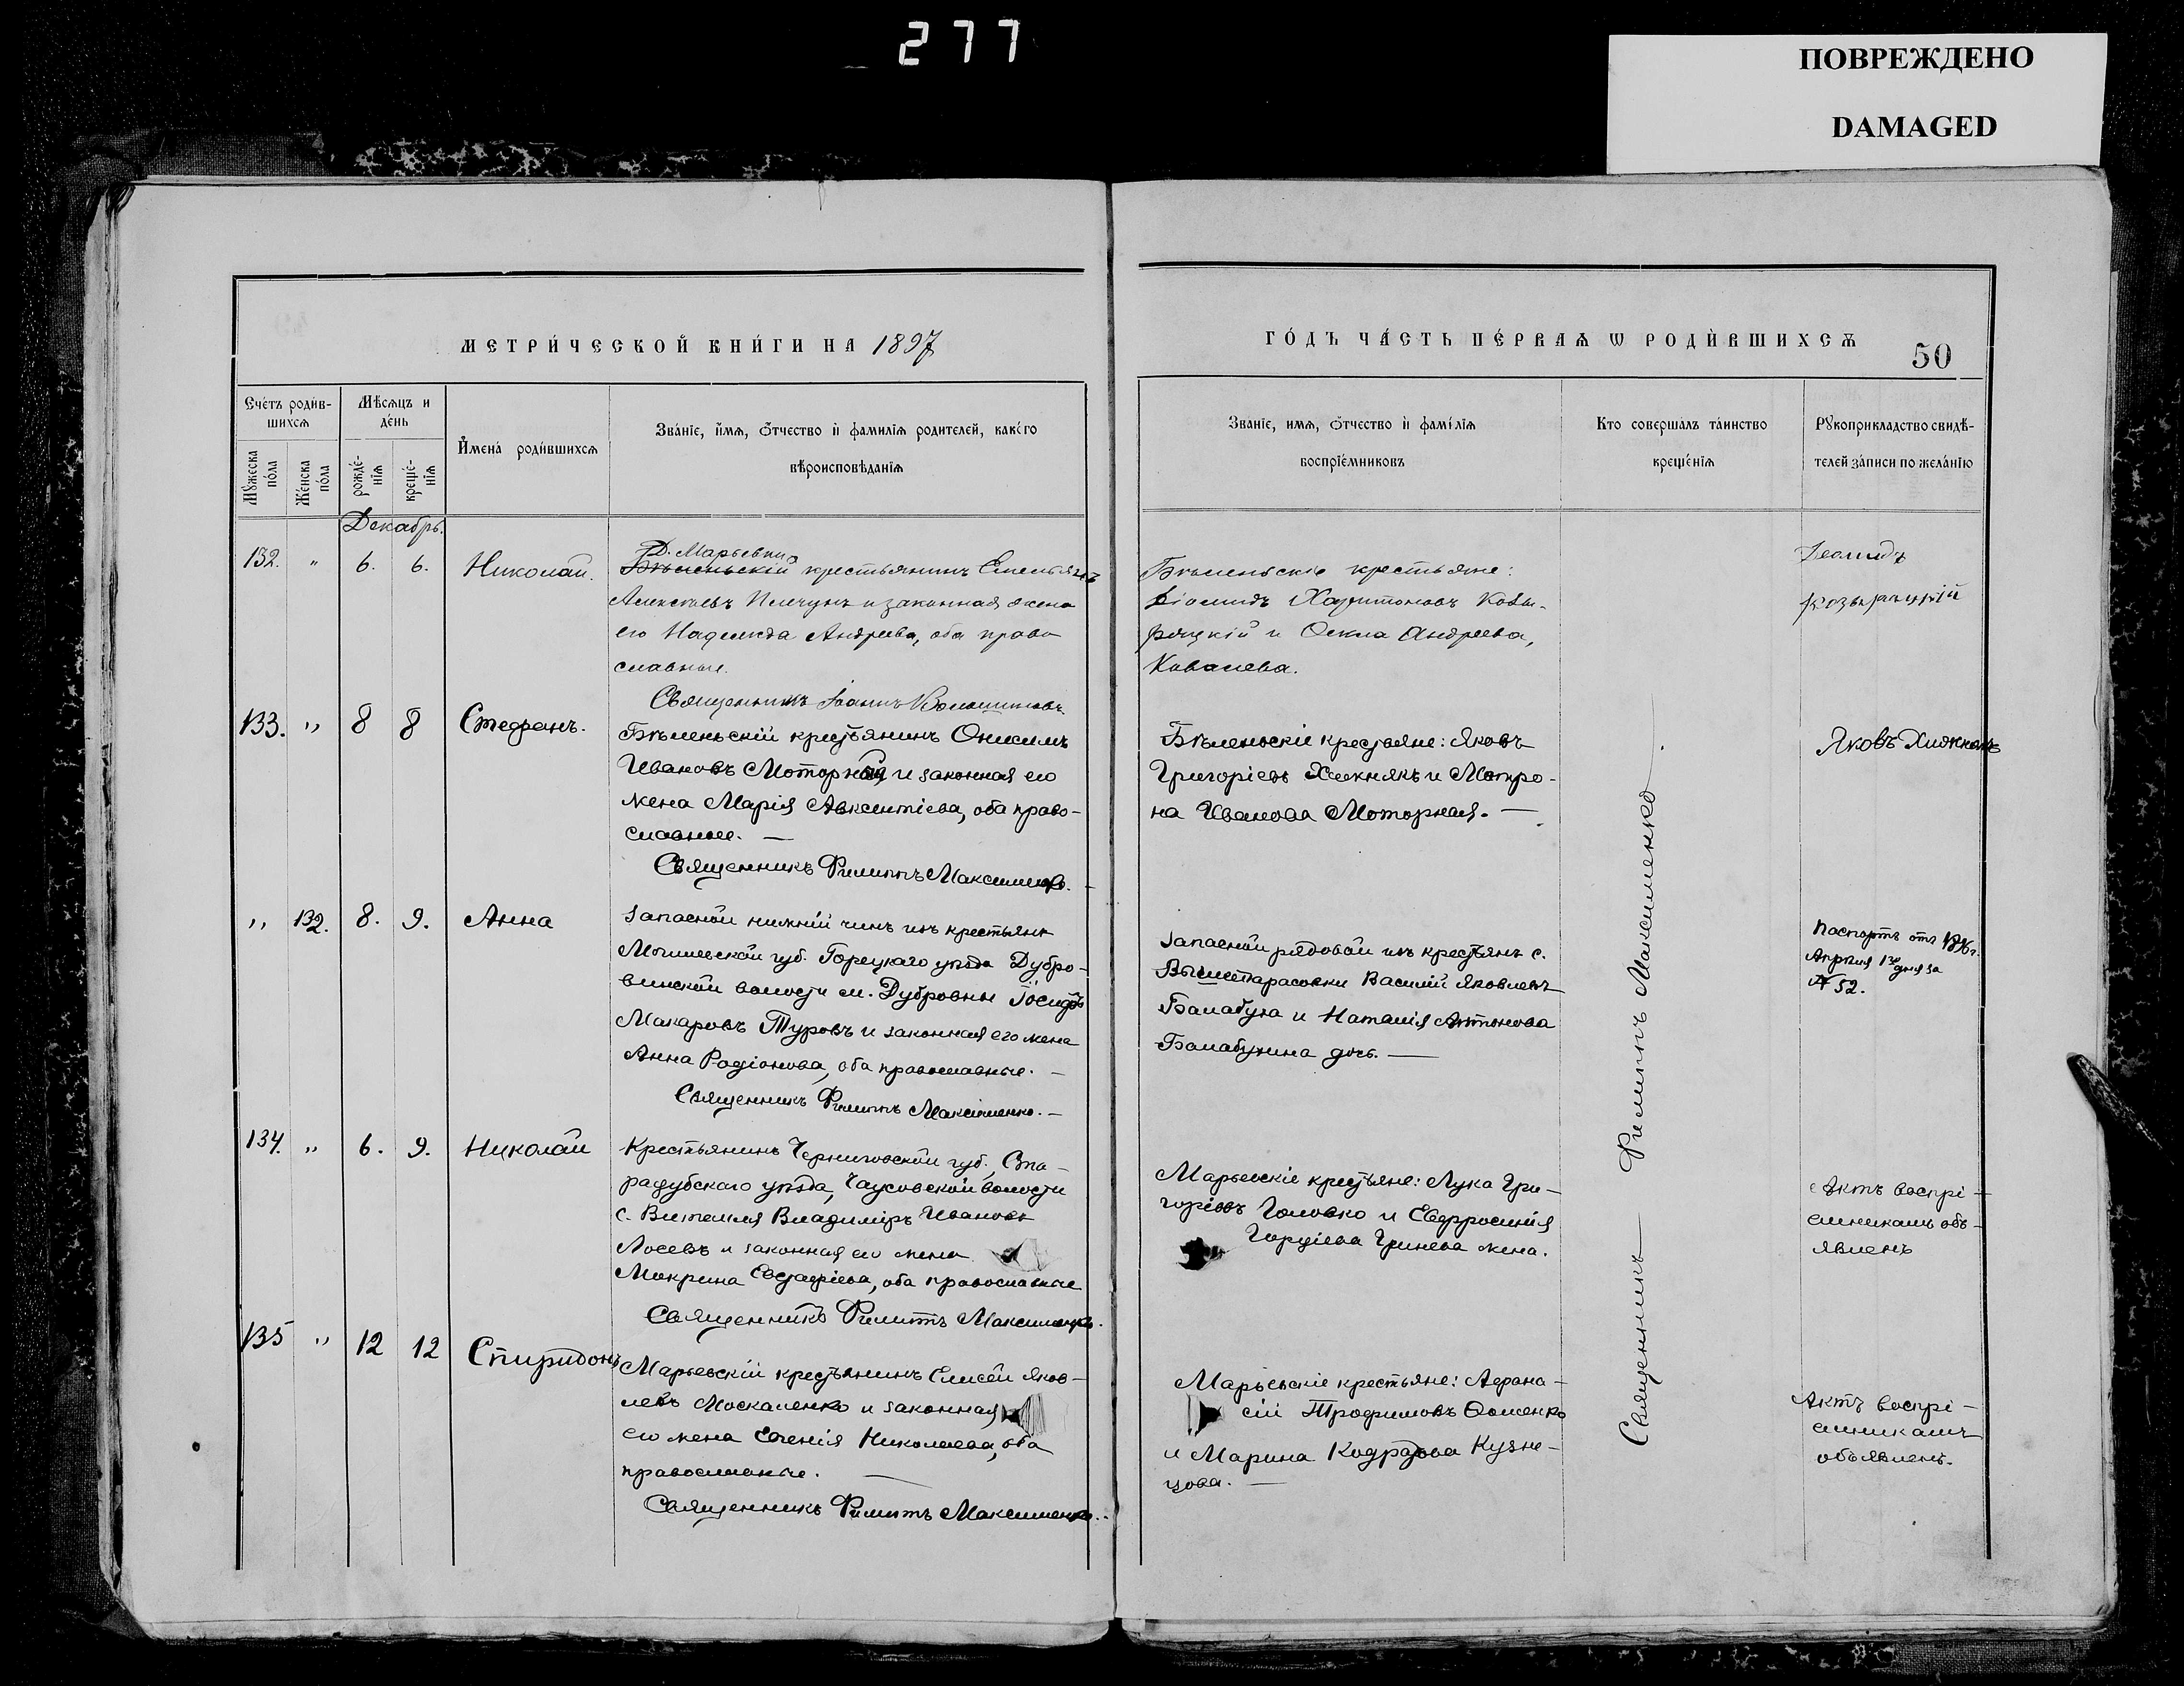 277
ПОВРЕЖДЕНО
DAMAGED
МЕТРИ́ЧЕСКОЙ КНИ́ГИ НА 1897
ГО́ДЪ ЧА́СТЬ ПЕ́РВАѦ Ѡ РОДИ́ВШИХСѦ
50
Сче́тъ роди́в-
шихсѧ
Мѣ́сѧцъ и
де́нь
Мꙋ́жеска
по́ла
Же́нска
по́ла
рожде́-
нїѧ
креще́-
нїѧ
И҆мена́ роди́вшихсѧ
Зва́нїе, и҆́мѧ, ѻ҆́тчество и҆ фамилїѧ родителей, како́го
вѣроисповѣ́данїѧ
Званїе, имѧ, ѻ҆́тчество и҆ фамі́лїѧ
воспрїе́мниковъ
Кто соверша́лъ та́инство
креще́нїѧ
Рꙋкоприкладство свидѣ́-
телей за́писи по жела́нїю
Декабрь.
132. " 6. 6. Николай.
Д. Марьевки
Бѣленьскій крестьянинъ Емельянъ
Алексѣевъ и законная жена
его Надежда Андреева, оба право
славные.
Священникъ Іоаннъ
Бѣленьскіе крестьяне:
Харитоновъ Козы-
рацкій и Ѳекла Андреева,
Ковалева.
133. " 8 8 Стефанъ.
Бѣленьскій крестьянинъ Онисимъ
Ивановъ Моторный и законная его
жена Марія Авксентіева, оба право-
славные. —
Священникъ Филиппъ Максименко.
Бѣленьскіе крестьяне: Яковъ
Григоріевъ Хижнякъ и Мотро-
на Иванова Моторная. —
Яковъ Хижнякъ
" 132. 8. 9. Анна
Запасной нижній чинъ изъ крестьянъ
Могилевской губ. Горецкаго уѣзда Дубро-
винской волости м. Дубровны Іосифъ
Макаровъ Туровъ и законная его жена
Анна Родіонова, оба православные. —
Священникъ Филиппъ Максименко. —
Запасной рядовой изъ крестьянъ с.
Вышетарасовки Василій Яковлевъ
Балабуха и Наталія Антонова
Балабухина дочь. —
Паспортъ отъ 1896 г.
Апрѣля 1го дня за
№ 52.
134. " 6. 9. Николай
Крестьянинъ Черниговской губ., Ста-
радубскаго уѣзда, Чаусовской волости
с. Витемля Владиміръ Ивановъ
Лосевъ и законная его жена
Макрина Евстафіева, оба православные
Священникъ Филиппъ Максименко.
Марьевскіе крестьяне: Лука Гри-
горіевъ Головко и Евфросинія
Гордіева Гринева жена.
Актъ воспрі-
емникамъ объ-
явленъ
135 " 12 12 Спиридонъ
Марьевскій крестьянинъ Елисей Яков-
левъ Москаленко и законная
его жена Евгенія Николаева, оба
православные. —
Священникъ Филиппъ Максименко.
Марьевскіе крестьяне: Афана-
сій Трофимовъ Ѳоменко
и Марина Кодратова Кузне-
цова. —
Актъ воспрі-
емникамъ
объявленъ.
Священникъ — Филиппъ Максименко